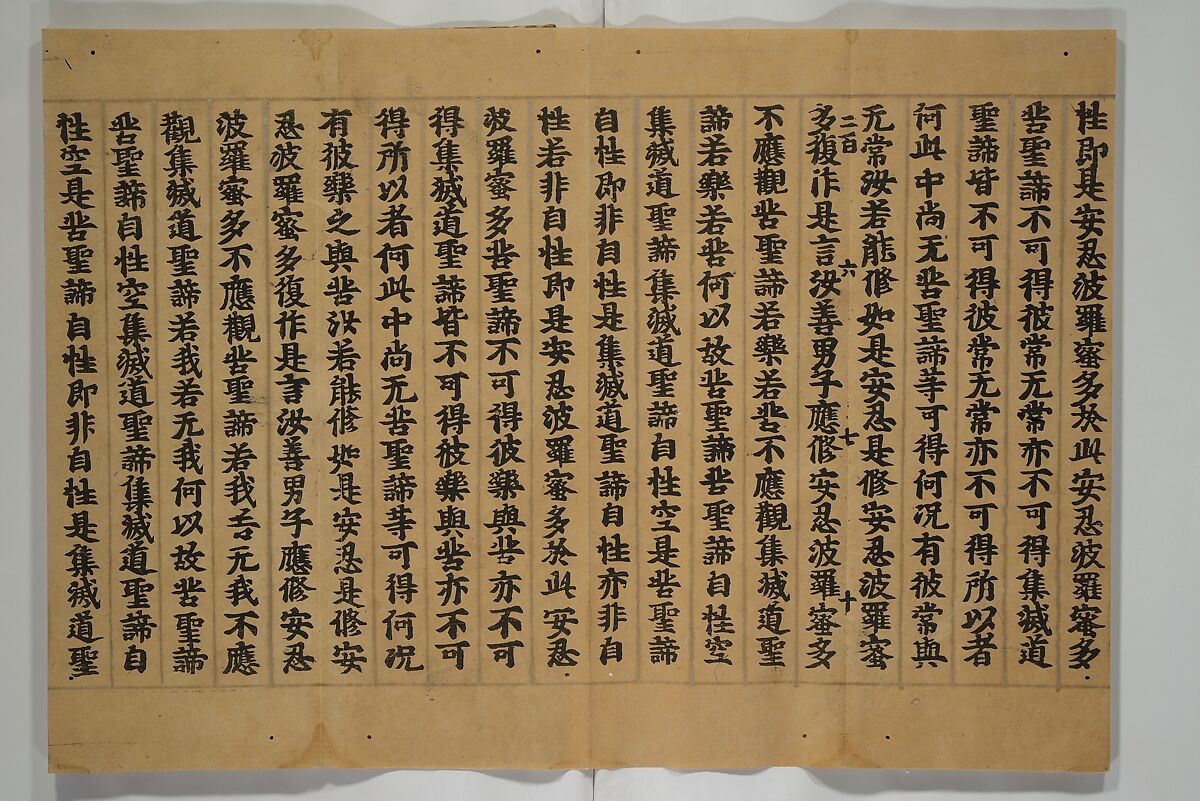 性即是安忍波羅蜜多於此安忍波羅蜜多
苦聖諦不可得彼常无常亦不可得集滅道
聖諦皆不可得彼常无常亦不可得所以者
何此中尚无苦聖諦等可得何况有彼常與
无常汝若能修如是安忍是修安忍波羅蜜
二百 六 七 十
多復作是言汝善男子應修安忍波羅蜜多
不應觀苦聖諦若樂若苦不應觀集滅道聖
諦若樂若苦何以故苦聖諦苦聖諦自性空
集滅道聖諦集滅道聖諦自性空是苦聖諦
自性即非自性是集滅道聖諦自性亦非自
性若非自性即是安忍波羅蜜多於此安忍
波羅蜜多苦聖諦不可得彼樂與苦亦不可
得集滅道聖諦皆不可得彼樂與苦亦不可
得所以者何此中尚无苦聖諦等可得何况
有彼樂之與苦汝若能修如是安忍是修安
忍波羅蜜多復作是言汝善男子應修安忍
波羅蜜多不應觀苦聖諦若我若无我不應
觀集滅道聖諦若我若无我何以故苦聖諦
苦聖諦自性空集滅道聖諦集滅道聖諦自
性空是苦聖諦自性即非自性是集滅道聖